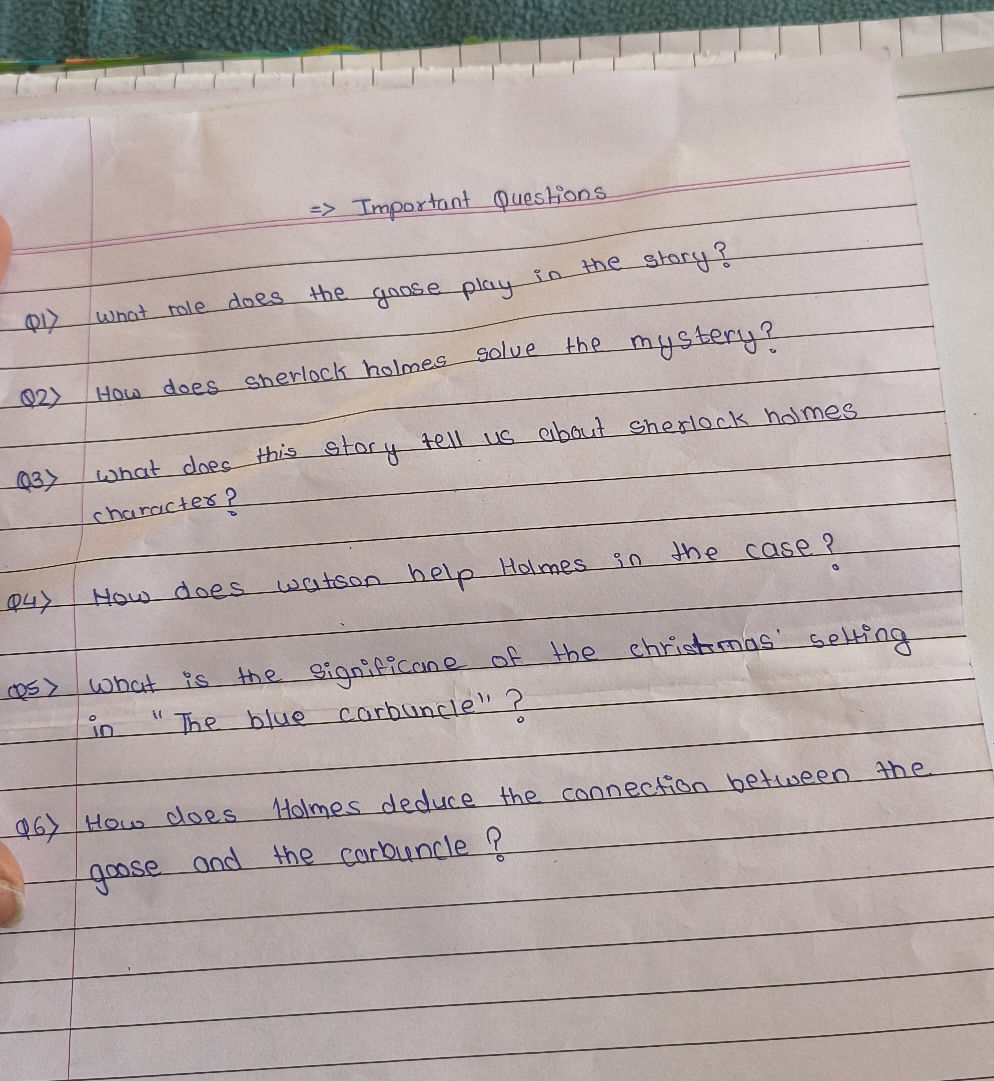 => Important Questions
Q1> What role does the goose play in the story?
Q2> How does sherlock holmes solve the mystery?
Q3> What does this story tell us about sherlock holmes
character?
Q4> How does watson help Holmes in the case?
Q5> What is the significane of the christmas' setting
in "The blue carbuncle"?
Q6> How does Holmes deduce the connection between the
goose and the carbuncle?